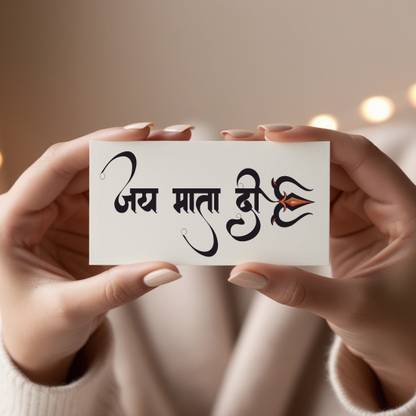 जय माता दी